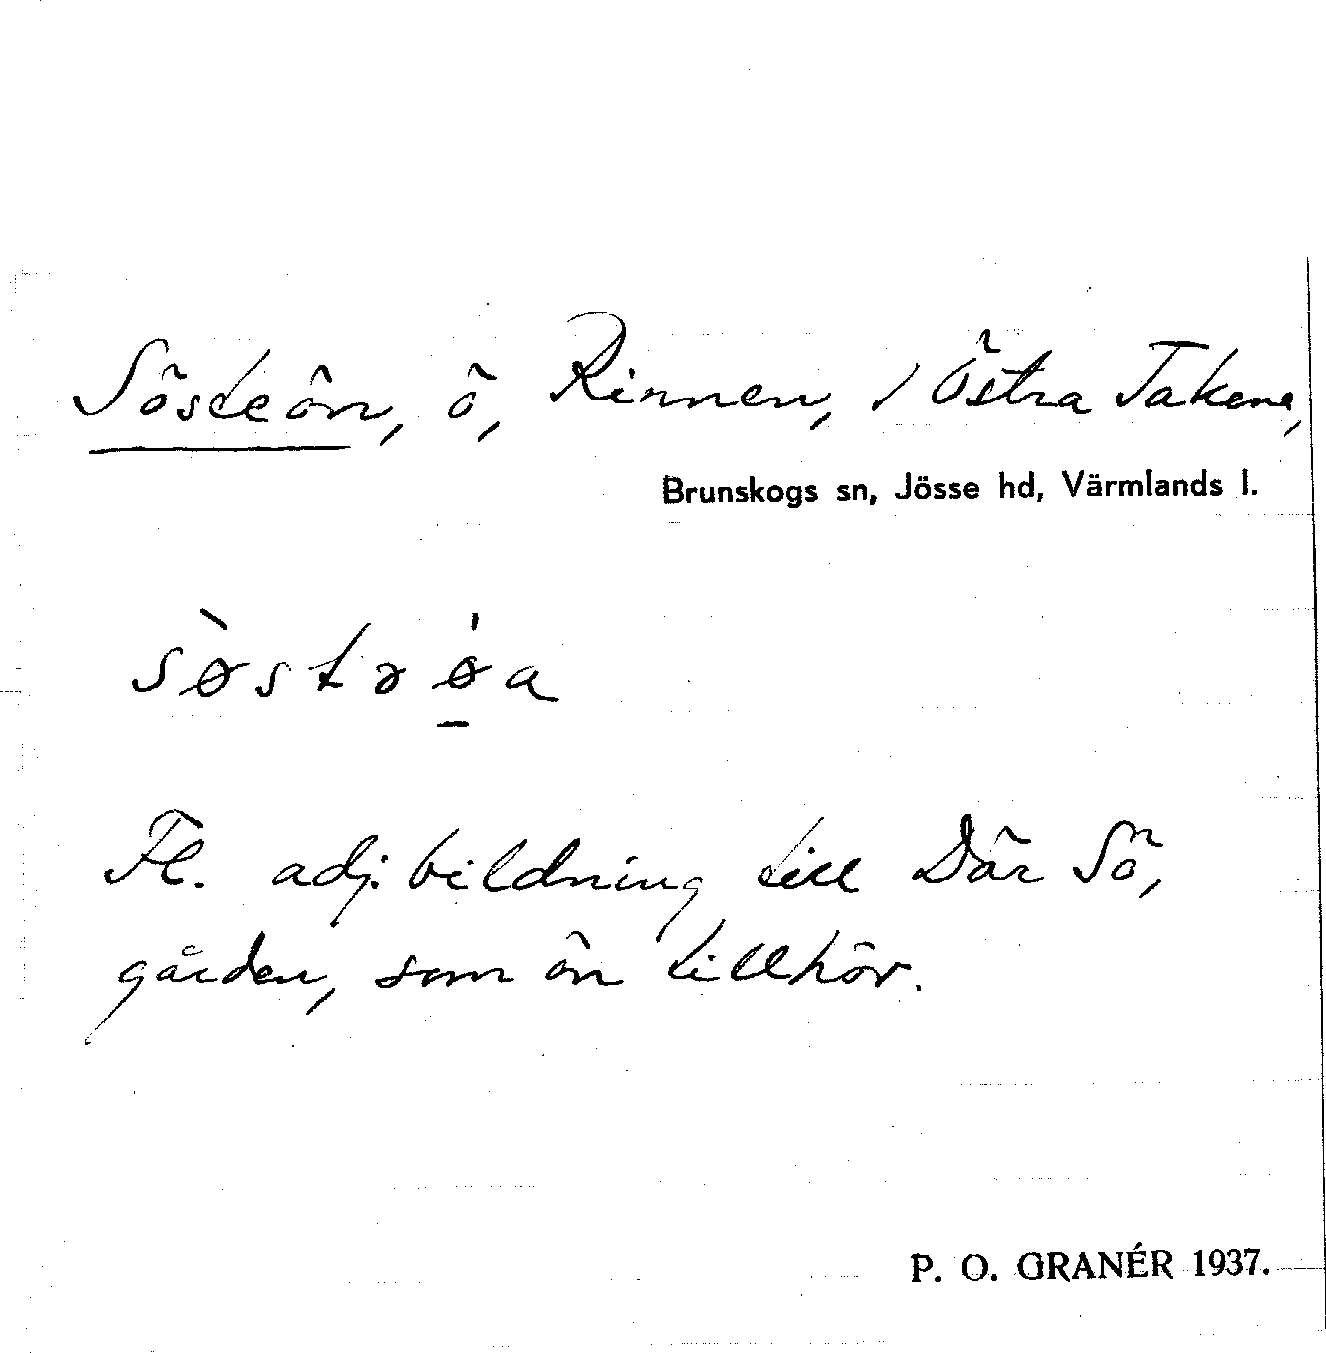 Sösteön, ö, Rinnen, i Östra Takene,
Brunskogs sn, Jösse hd, Värmlands l.
sø̀stəǿ̱a
Fl. adj. bildning till Där Sö,
gården, som ön tillhör.
P. O. GRANÉR 1937.